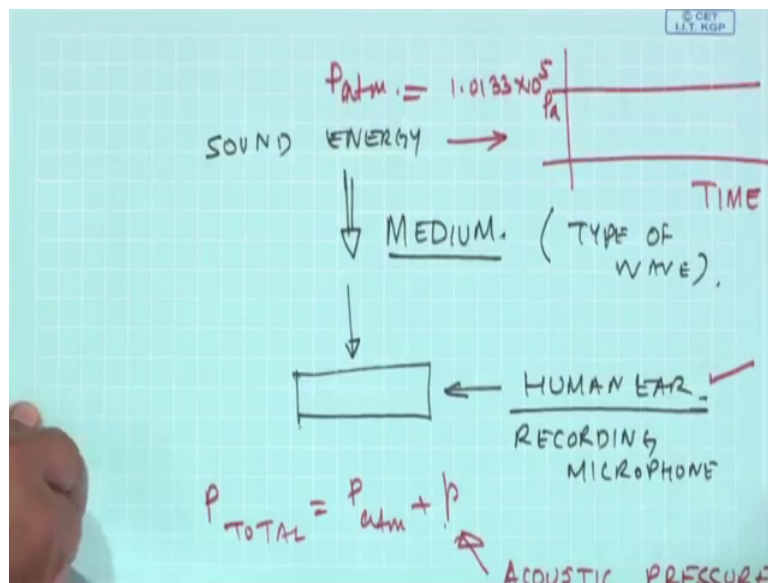 © CET
I.I.T. KGP
Patm. = 1.0133×10⁵
Pa
SOUND ENERGY →
TIME
MEDIUM. (TYPE OF
WAVE).
HUMAN EAR.
RECORDING
MICROPHONE
P TOTAL = Patm + p
ACOUSTIC PRESSURE